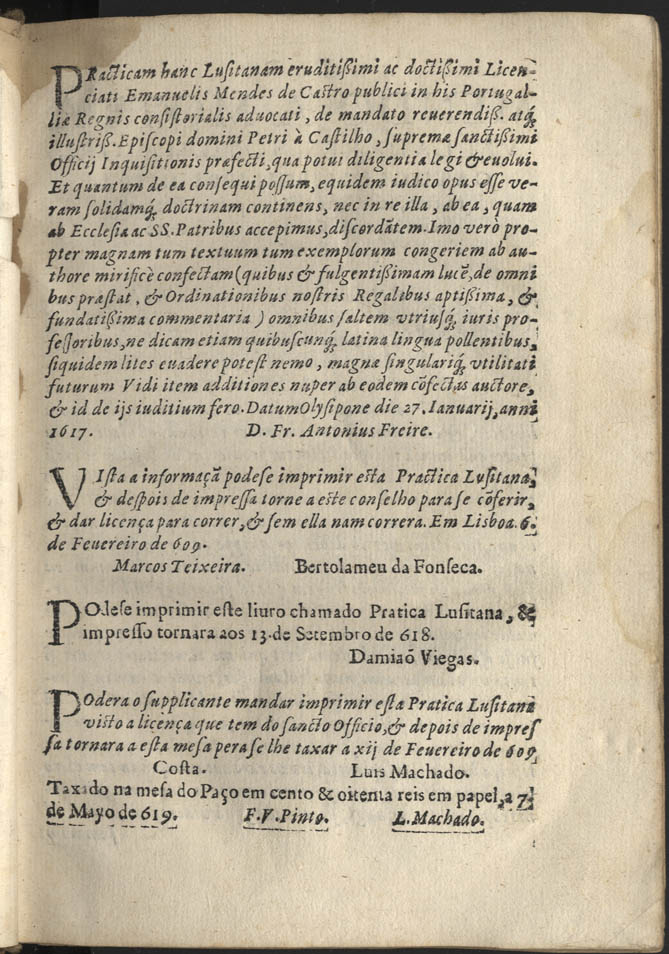 PRacticam hanc Lusitanam eruditißimi ac doctißimi Licen-
ciati Emanuelis Mendes de Castro publici in his Portugal-
liæ Regnis consistorialis aduocati, de mandato reuerendiß. atq;
illustriß. Episcopi domini Petri à Castilho, supremæ sanctißimi
Officij Inquisitionis præfecti, qua potui diligentia legi & euolui.
Et quantum de ea consequi possum, equidem iudico opus esse ve-
ram solidamq; doctrinam continens, nec in re illa, ab ea, quam
ab Ecclesia ac SS. Patribus accepimus, discordãtem. Imo verò pro-
pter magnam tum textuum tum exemplorum congeriem ab au-
thore mirificè confectam (quibus & fulgentißimam lucẽ, de omni
bus præstat, & Ordinationibus nostris Regalibus aptißima, &
fundatißima commentaria) omnibus saltem vtriusq; iuris pro-
fessoribus, ne dicam etiam quibuscunq; latina lingua pollentibus,
siquidem lites euadere potest nemo, magnæ singulariq; vtilitati
futurum Vidi item additiones nuper ab eodem cõfectas auctore,
& id de ijs iuditium fero. Datum Olysipone die 27. Ianuarij, anni
1617. D. Fr. Antonius Freire.
VIsta a informaçã podese imprimir esta Practica Lusitana,
& despois de impressa torne a este conselho para se cõferir,
& dar licença para correr, & sem ella nam correra. Em Lisboa. 6.
de Feuereiro de 609.
Marcos Teixeira. Bertolameu da Fonseca.
POdese imprimir este liuro chamado Pratica Lusitana, &
impresso tornara aos 13. de Setembro de 618.
Damiaõ Viegas.
POdera o supplicante mandar imprimir esta Pratica Lusitana
visto a licença que tem do sancto Officio, & depois de impres
sa tornara a esta mesa pera se lhe taxar a xij de Feuereiro de 609
Costa. Luis Machado.
Taxado na mesa do Paço em cento & oitenta reis em papel, a 7.
de Mayo de 619. F. V. Pinto. L. Machado.